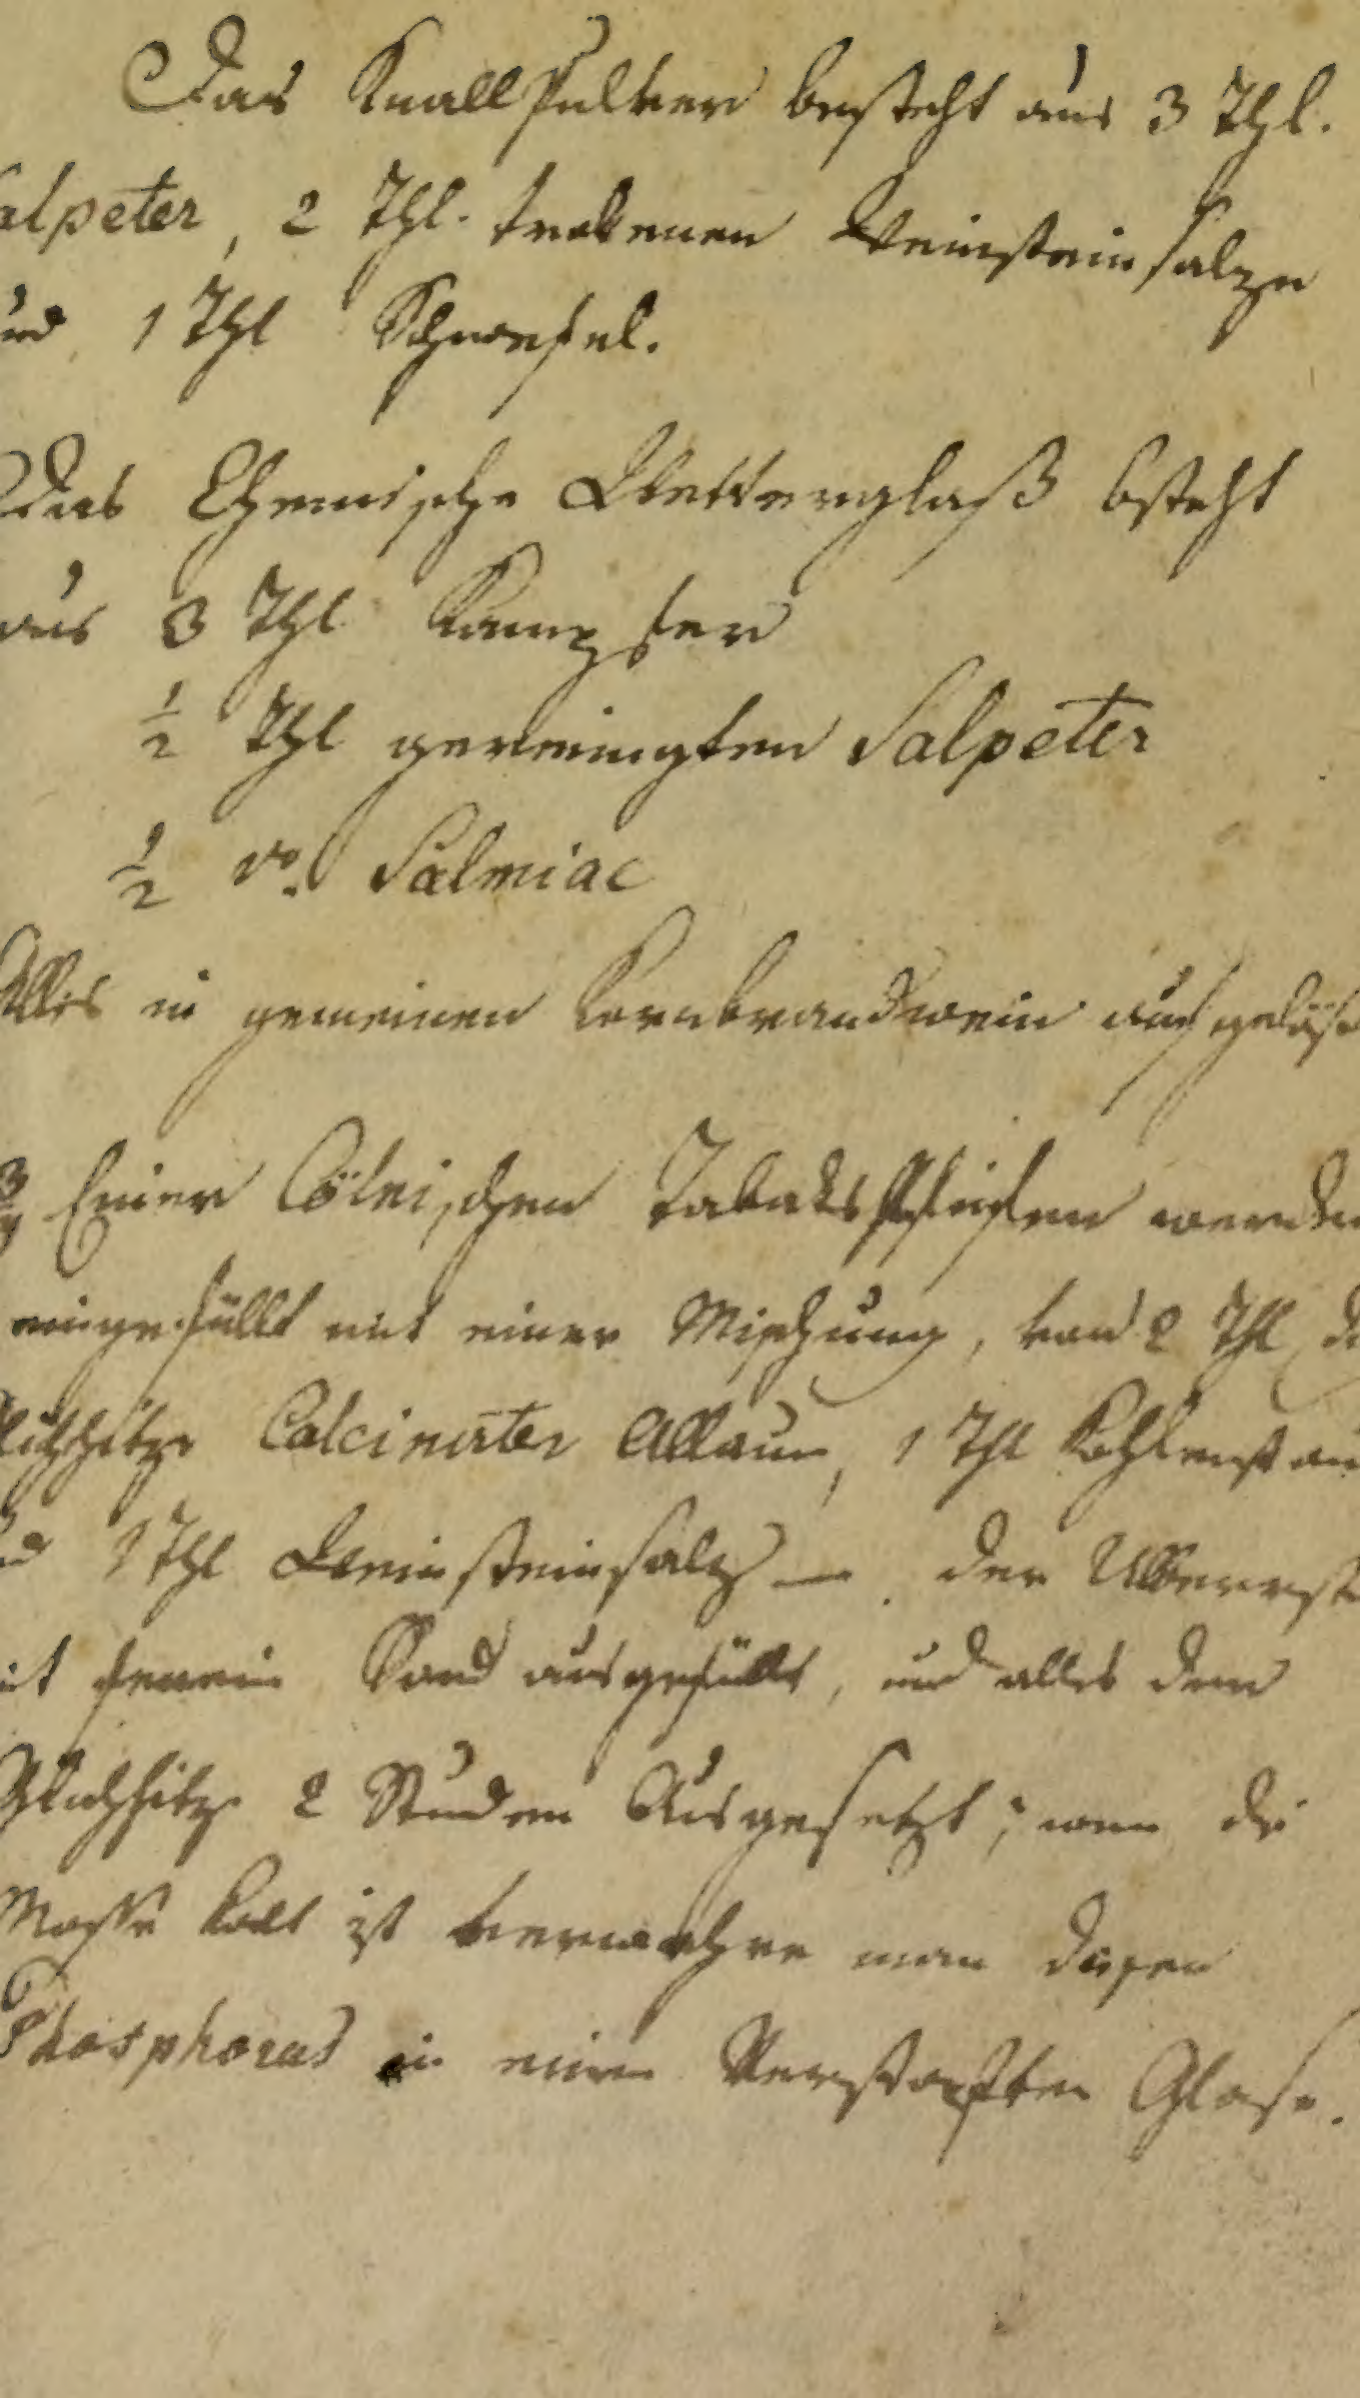 Das Knall Pulver besteht aus 3 Thl.
alpeter, 2 Thl. trokenen Weinstein salze
und 1 Thl Schwefel.
Das Chemische Wetterglaß bsteht
aus 3 Thl Kampfer
1/2 Thl gereinigten Salpeter
1/2 do. Salmiac
Alles in gemeinen Kornbrandwein aufgelöst
3/4 Einer Cölnischen Tabaks Pfeifen werden
eingefüllt mit einer Mischung, von 2 Thl
Calcinirter Allaun, 1 Thl Kohlenstau
1 Thl Weinsteinsalz — der Ubberrest
it feinen Sand ausgefüllt, und alles der
Glühhitze 2 Stunden Ausgesetzt; wenn die
Masse kalt ist verwahre man diesen
Phosphorus in einem Verstopften Glase.